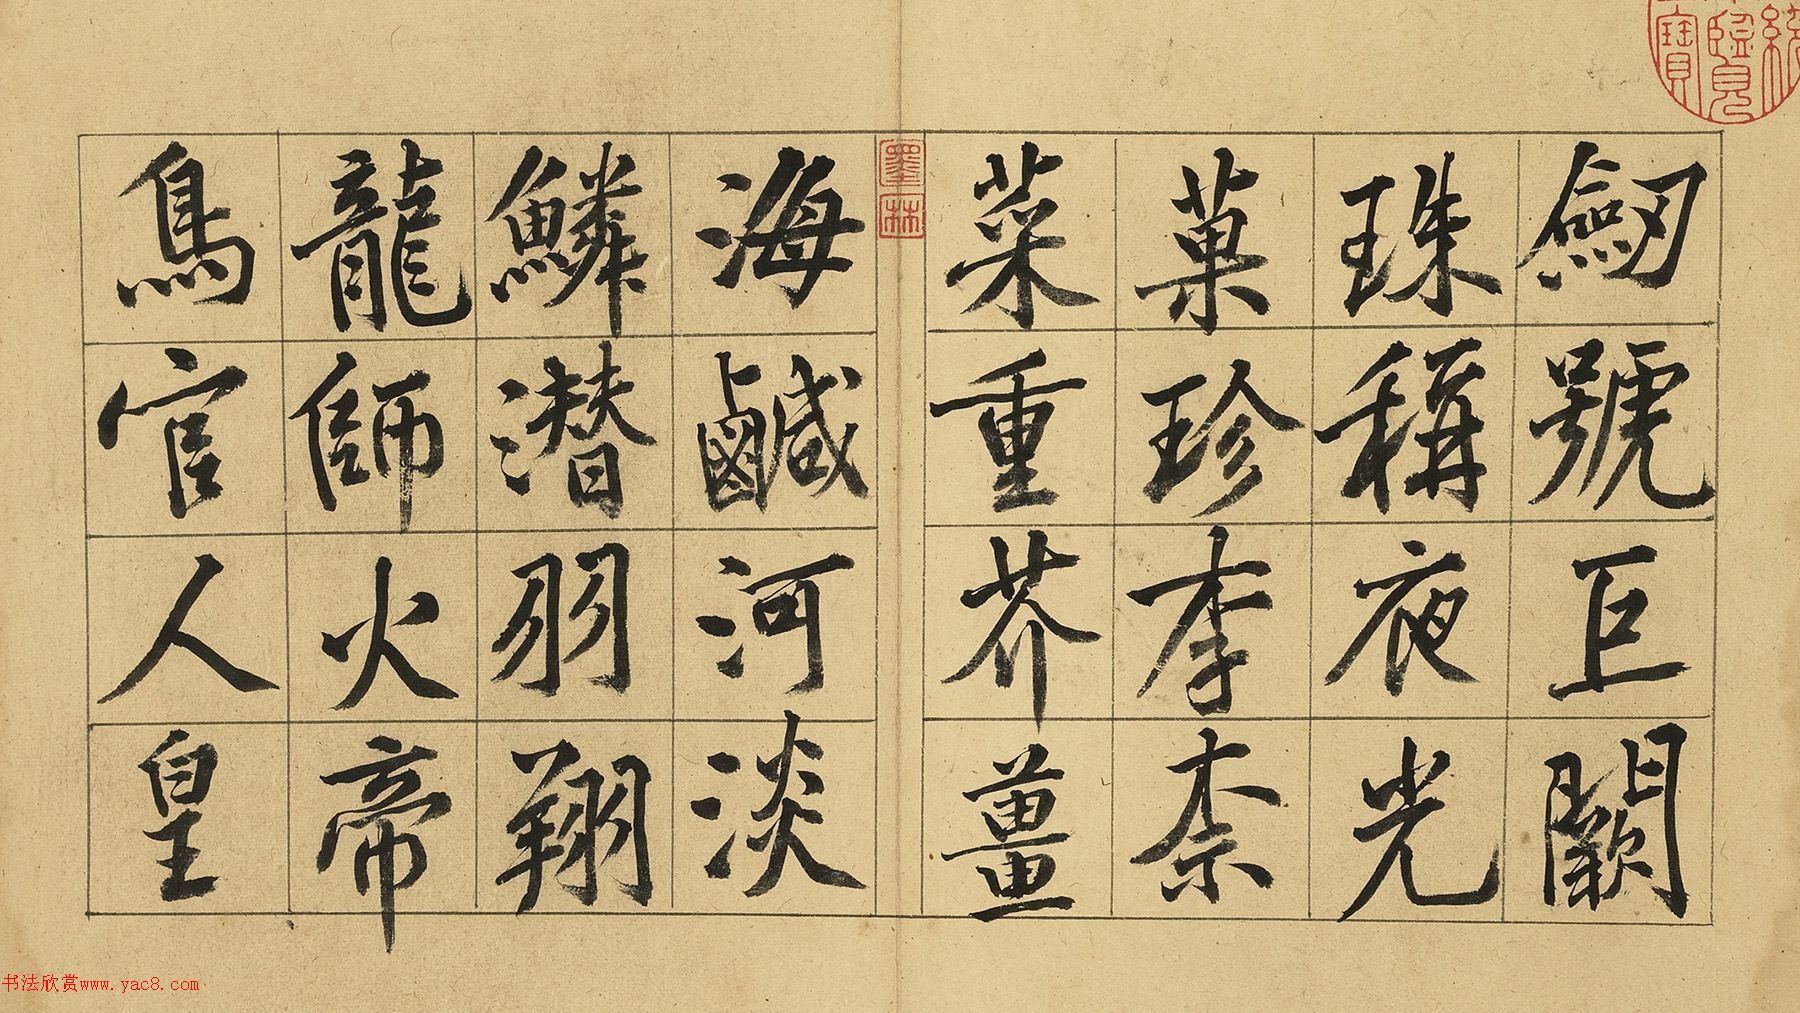 劔號巨闕
珠稱夜光
菓珍李柰
菜重芥薑
海鹹河淡
鱗潛羽翔
龍師火帝
鳥官人皇
墨林
書法欣赏www.yac8.com